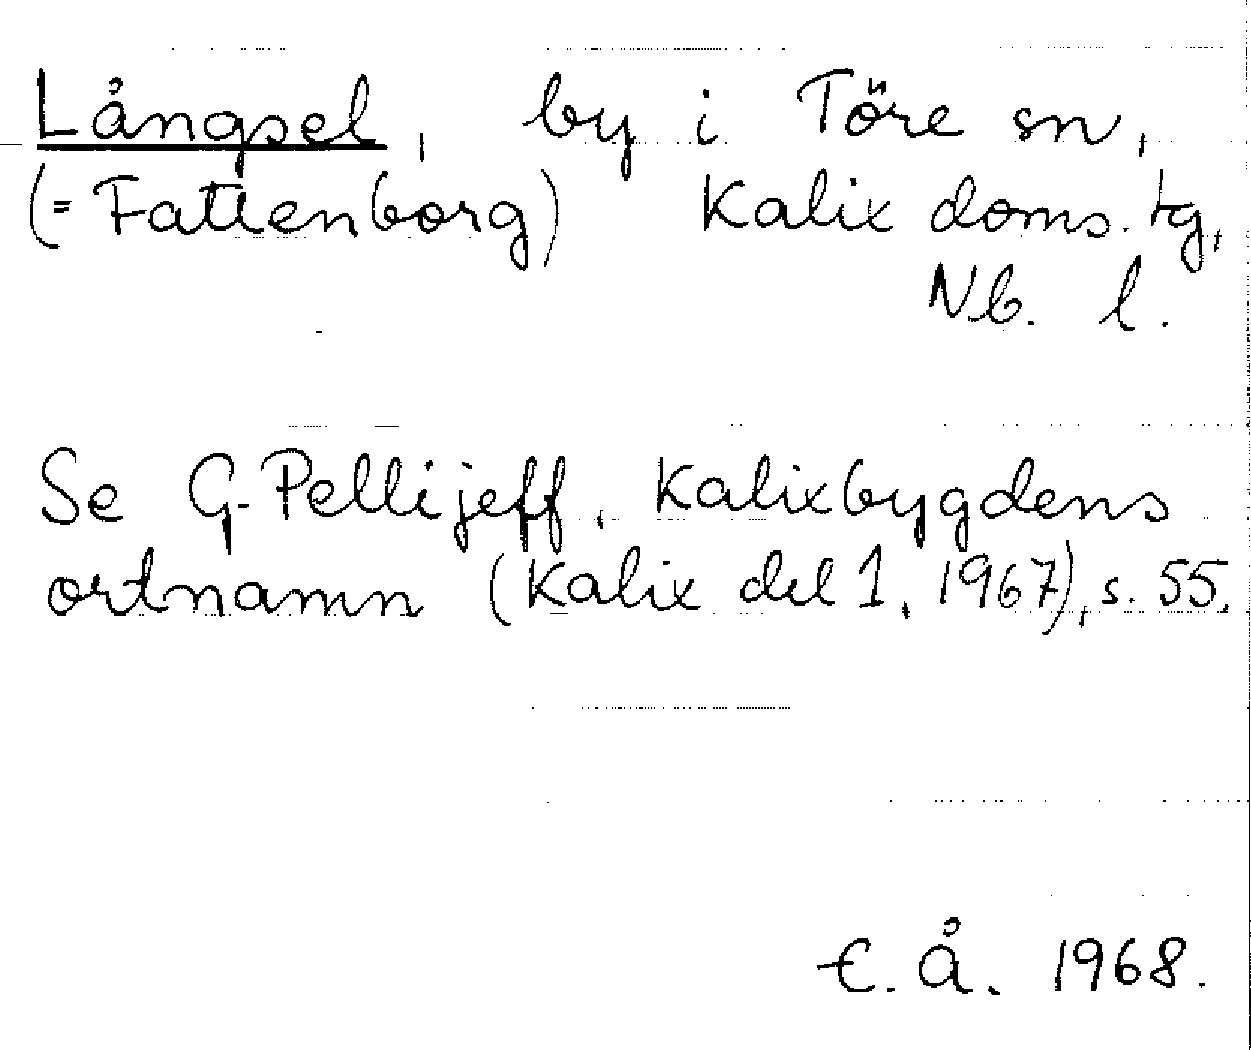 Långsel, by i Töre sn,
(= Fattenborg) Kalix doms. tg,
Nb. l.
Se G. Pellijeff, Kalixbygdens
ortnamn (Kalix del 1, 1967), s. 55.
E. Å. 1968.